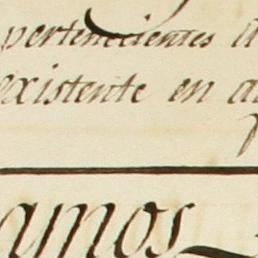 pertenecientes á
existente en
amos